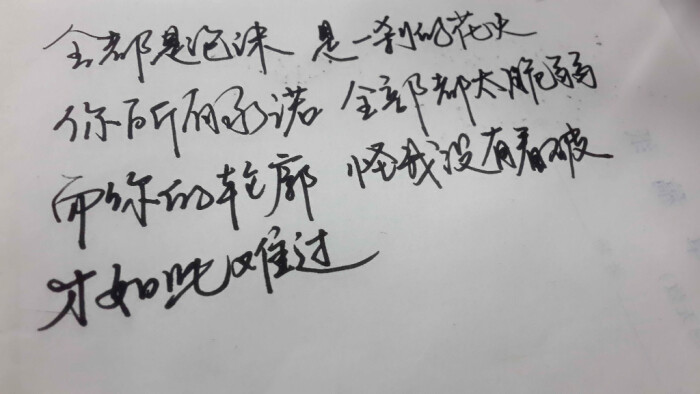 全都是泡沫 是一刹的花火
你所有承诺 全部都太脆弱
而你的轮廓 怪我没有看破
才如此难过